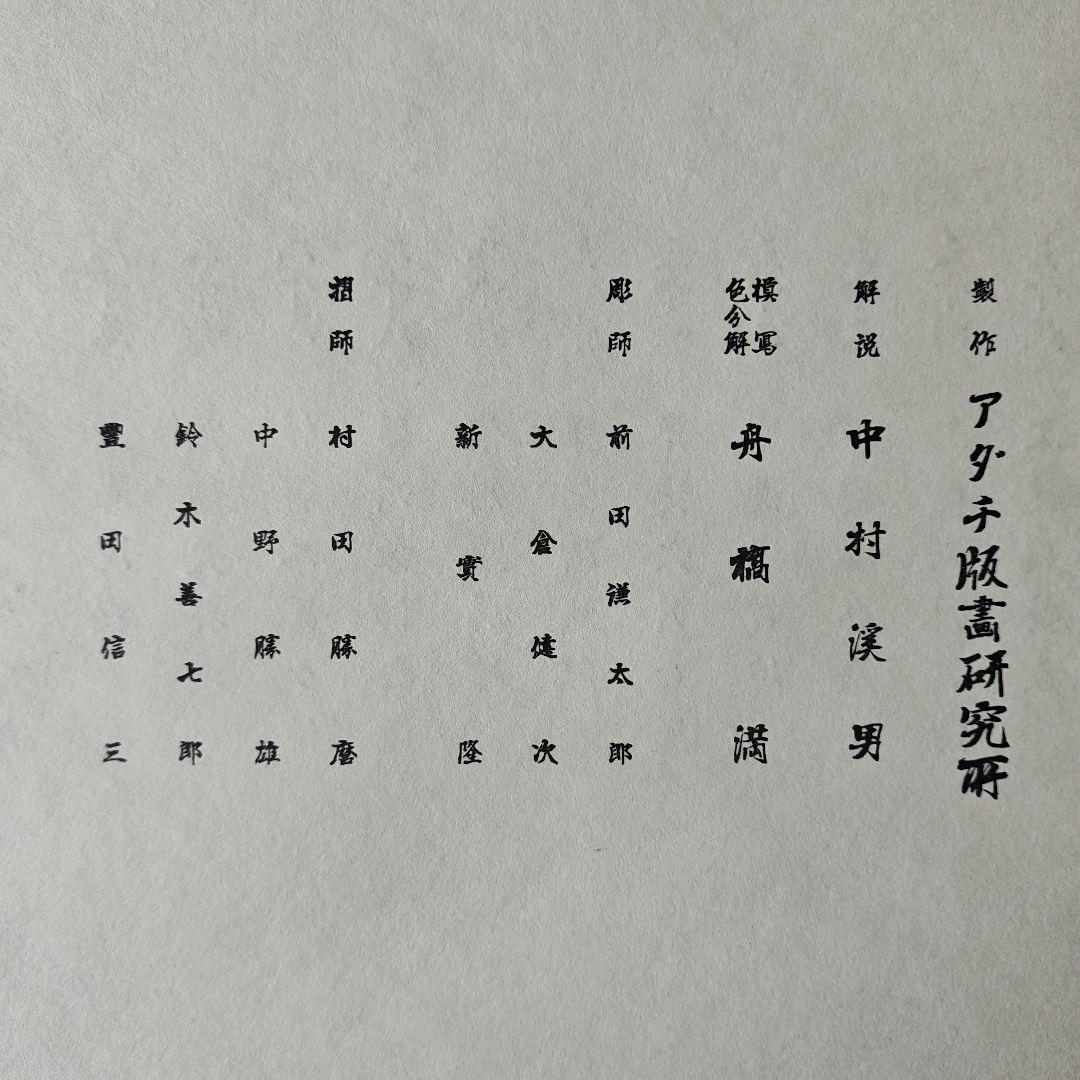 製作 アダチ版畫研究所
解説 中村渓男
模寫
色分解 舟橋満
彫師 前田謙太郎
大倉健次
新實隆
摺師 村田勝麿
中野勝雄
鈴木善七郎
豐田信三